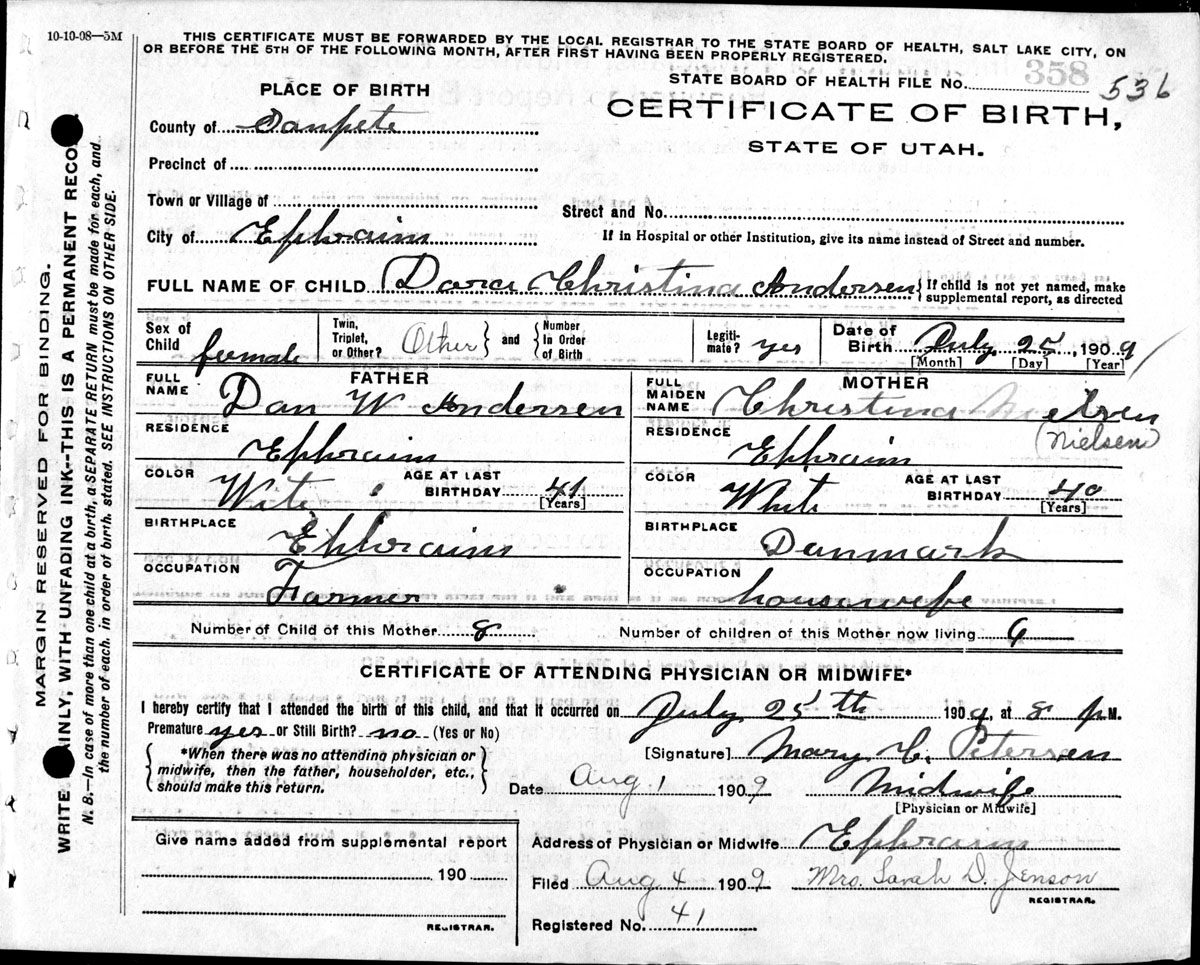 10-10-08—5M
THIS CERTIFICATE MUST BE FORWARDED BY THE LOCAL REGISTRAR TO THE STATE BOARD OF HEALTH, SALT LAKE CITY, ON
OR BEFORE THE 5TH OF THE FOLLOWING MONTH, AFTER FIRST HAVING BEEN PROPERLY REGISTERED.
STATE BOARD OF HEALTH FILE NO. 358 536
PLACE OF BIRTH
CERTIFICATE OF BIRTH,
STATE OF UTAH.
County of Sanpete
Precinct of
Town or Village of
Street and No.
City of Ephraim
If in Hospital or other Institution, give its name instead of Street and number.
FULL NAME OF CHILD Dora Christina Andersen { If child is not yet named, make
supplemental report, as directed
Sex of Child female
Twin, Triplet, or Other? Other } and { Number In Order of Birth
Legiti-mate? yes
Date of Birth July 25, 1909
[Month] [Day] [Year]
FATHER
FULL NAME Dan W Andersen
RESIDENCE Ephraim
COLOR Wite AGE AT LAST BIRTHDAY 41
[Years]
BIRTHPLACE Ephraim
OCCUPATION Farmer
MOTHER
FULL MAIDEN NAME Christina Neilsen
(Nielsen)
RESIDENCE Ephraim
COLOR White AGE AT LAST BIRTHDAY 40
[Years]
BIRTHPLACE Danmark
OCCUPATION housewefe
Number of Child of this Mother 8 Number of children of this Mother now living
CERTIFICATE OF ATTENDING PHYSICIAN OR MIDWIFE*
I hereby certify that I attended the birth of this child, and that it occurred on July 25th 1909, at 8 P.M.
Premature yes or Still Birth? no (Yes or No)
{ *When there was no attending physician or
midwife, then the father, householder, etc.,
should make this return. }
[Signature] Mary C. Petersen
Date Aug 1 1909 Midwife
[Physician or Midwife]
Give name added from supplemental report
190
REGISTRAR.
Address of Physician or Midwife Ephraim
Filed Aug 4 1909 Mrs. Sarah D. Jenson
REGISTRAR.
Registered No. 41
MARGIN RESERVED FOR BINDING.
WRITE AINLY, WITH UNFADING INK--THIS IS A PERMANENT RECO
N. B.—In case of more than one child at a birth, a SEPARATE RETURN must be made for each, and.
the number of each. in order of birth. stated. SEE INSTRUCTIONS ON OTHER SIDE.